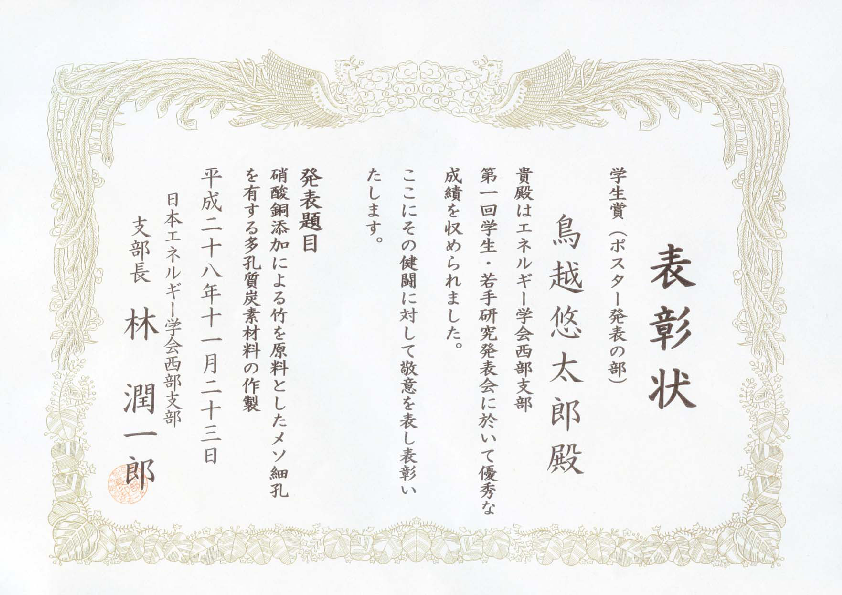 表彰状
学生賞（ポスター発表の部）
鳥越悠太郎殿
貴殿はエネルギー学会西部支部
第一回学生・若手研究発表会に於いて優秀な
成績を収められました。
ここにその健闘に対して敬意を表し表彰い
たします。
発表題目
硝酸銅添加による竹を原料としたメソ細孔
を有する多孔質炭素材料の作製
平成二十八年十一月二十三日
日本エネルギー学会西部支部
支部長 林 潤一郎